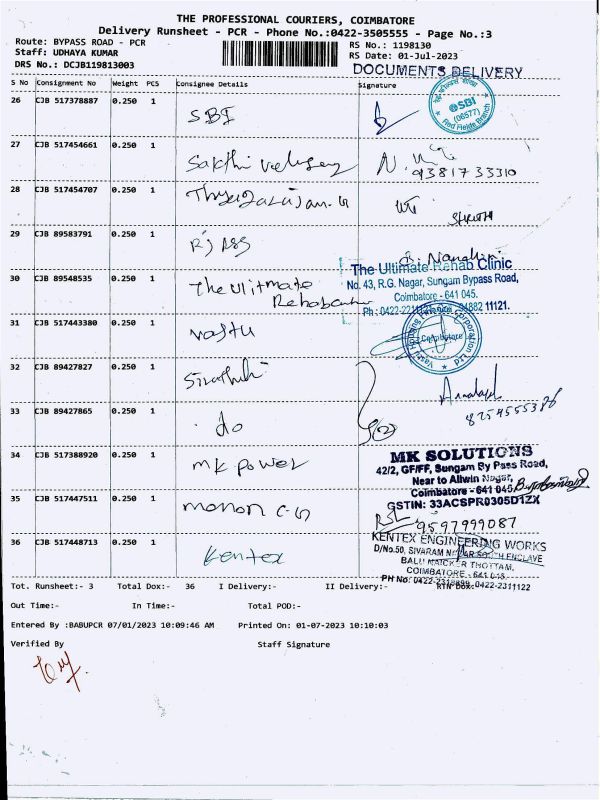 THE PROFESSIONAL COURIERS, COIMBATORE
Delivery Runsheet - PCR - Phone No.:0422-3505555 - Page No.:3
Route: BYPASS ROAD - PCR
RS No.: 1198130
Staff: UDHAYA KUMAR
RS Date: 01-Jul-2023
DRS No.: DCJB119813003
DOCUMENTS DELIVERY
S No Consignment No Weight PCS Consignee Details Signature
26 CJB 517378887 0.250 1 SBI
SBI
(06577)
Red Fields Branch
27 CJB 517454661 0.250 1 Sakthi
9381733310
28 CJB 517454707 0.250 1 Thyagarajan. G
29 CJB 89583791 0.250 1
The Ultimate Rehab Clinic
No. 43, R.G. Nagar, Sungam Bypass Road,
Coimbatore - 641 045.
30 CJB 89548535 0.250 1 The Ulitmate
Ph : 0422-221 04882 11121.
31 CJB 517443380 0.250 1 vastu
Coimbatore
32 CJB 89427827 0.250 1
33 CJB 89427865 0.250 1 do
34 CJB 517388920 0.250 1 MK power
MK SOLUTIONS
42/2, GF/FF, Sungam By Pass Road,
Near to Allwin Nagar,
Coimbatore - 641 045
GSTIN: 33ACSPR0305D1ZX
35 CJB 517447511 0.250 1 manon C-G
9597999087
36 CJB 517448713 0.250 1 Kentex
KENTEX ENGINEERING WORKS
D/No.50, SIVARAM NAGAR SOUTH ENCLAVE
BALU NAICKER THOTTAM,
COIMBATORE - 641 045.
Tot. Runsheet:- 3 Total Dox:- 36 I Delivery:- II Delivery:- RTN Dox:-
Out Time:- In Time:- Total POD:-
Entered By :BABUPCR 07/01/2023 10:09:46 AM Printed On: 01-07-2023 10:10:03
Verified By Staff Signature